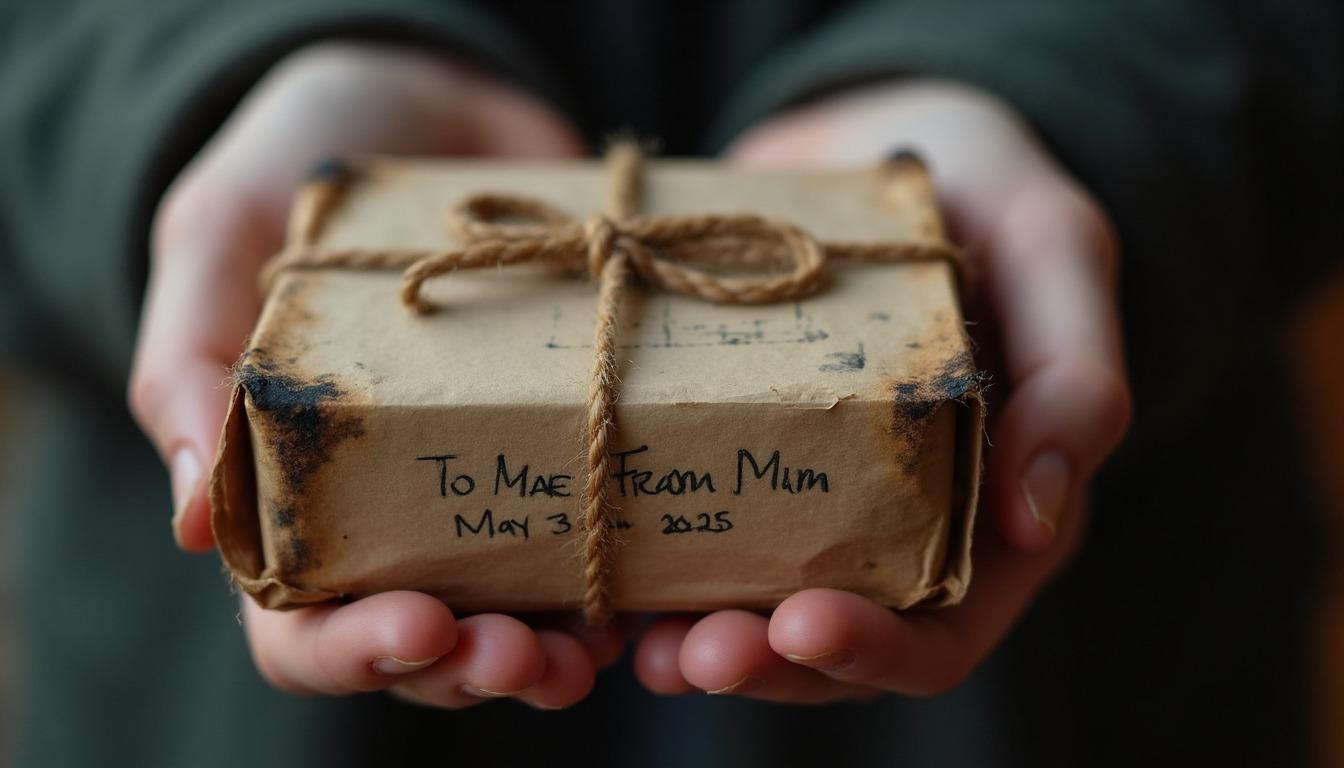 To Mae From Mum
May 3 2025